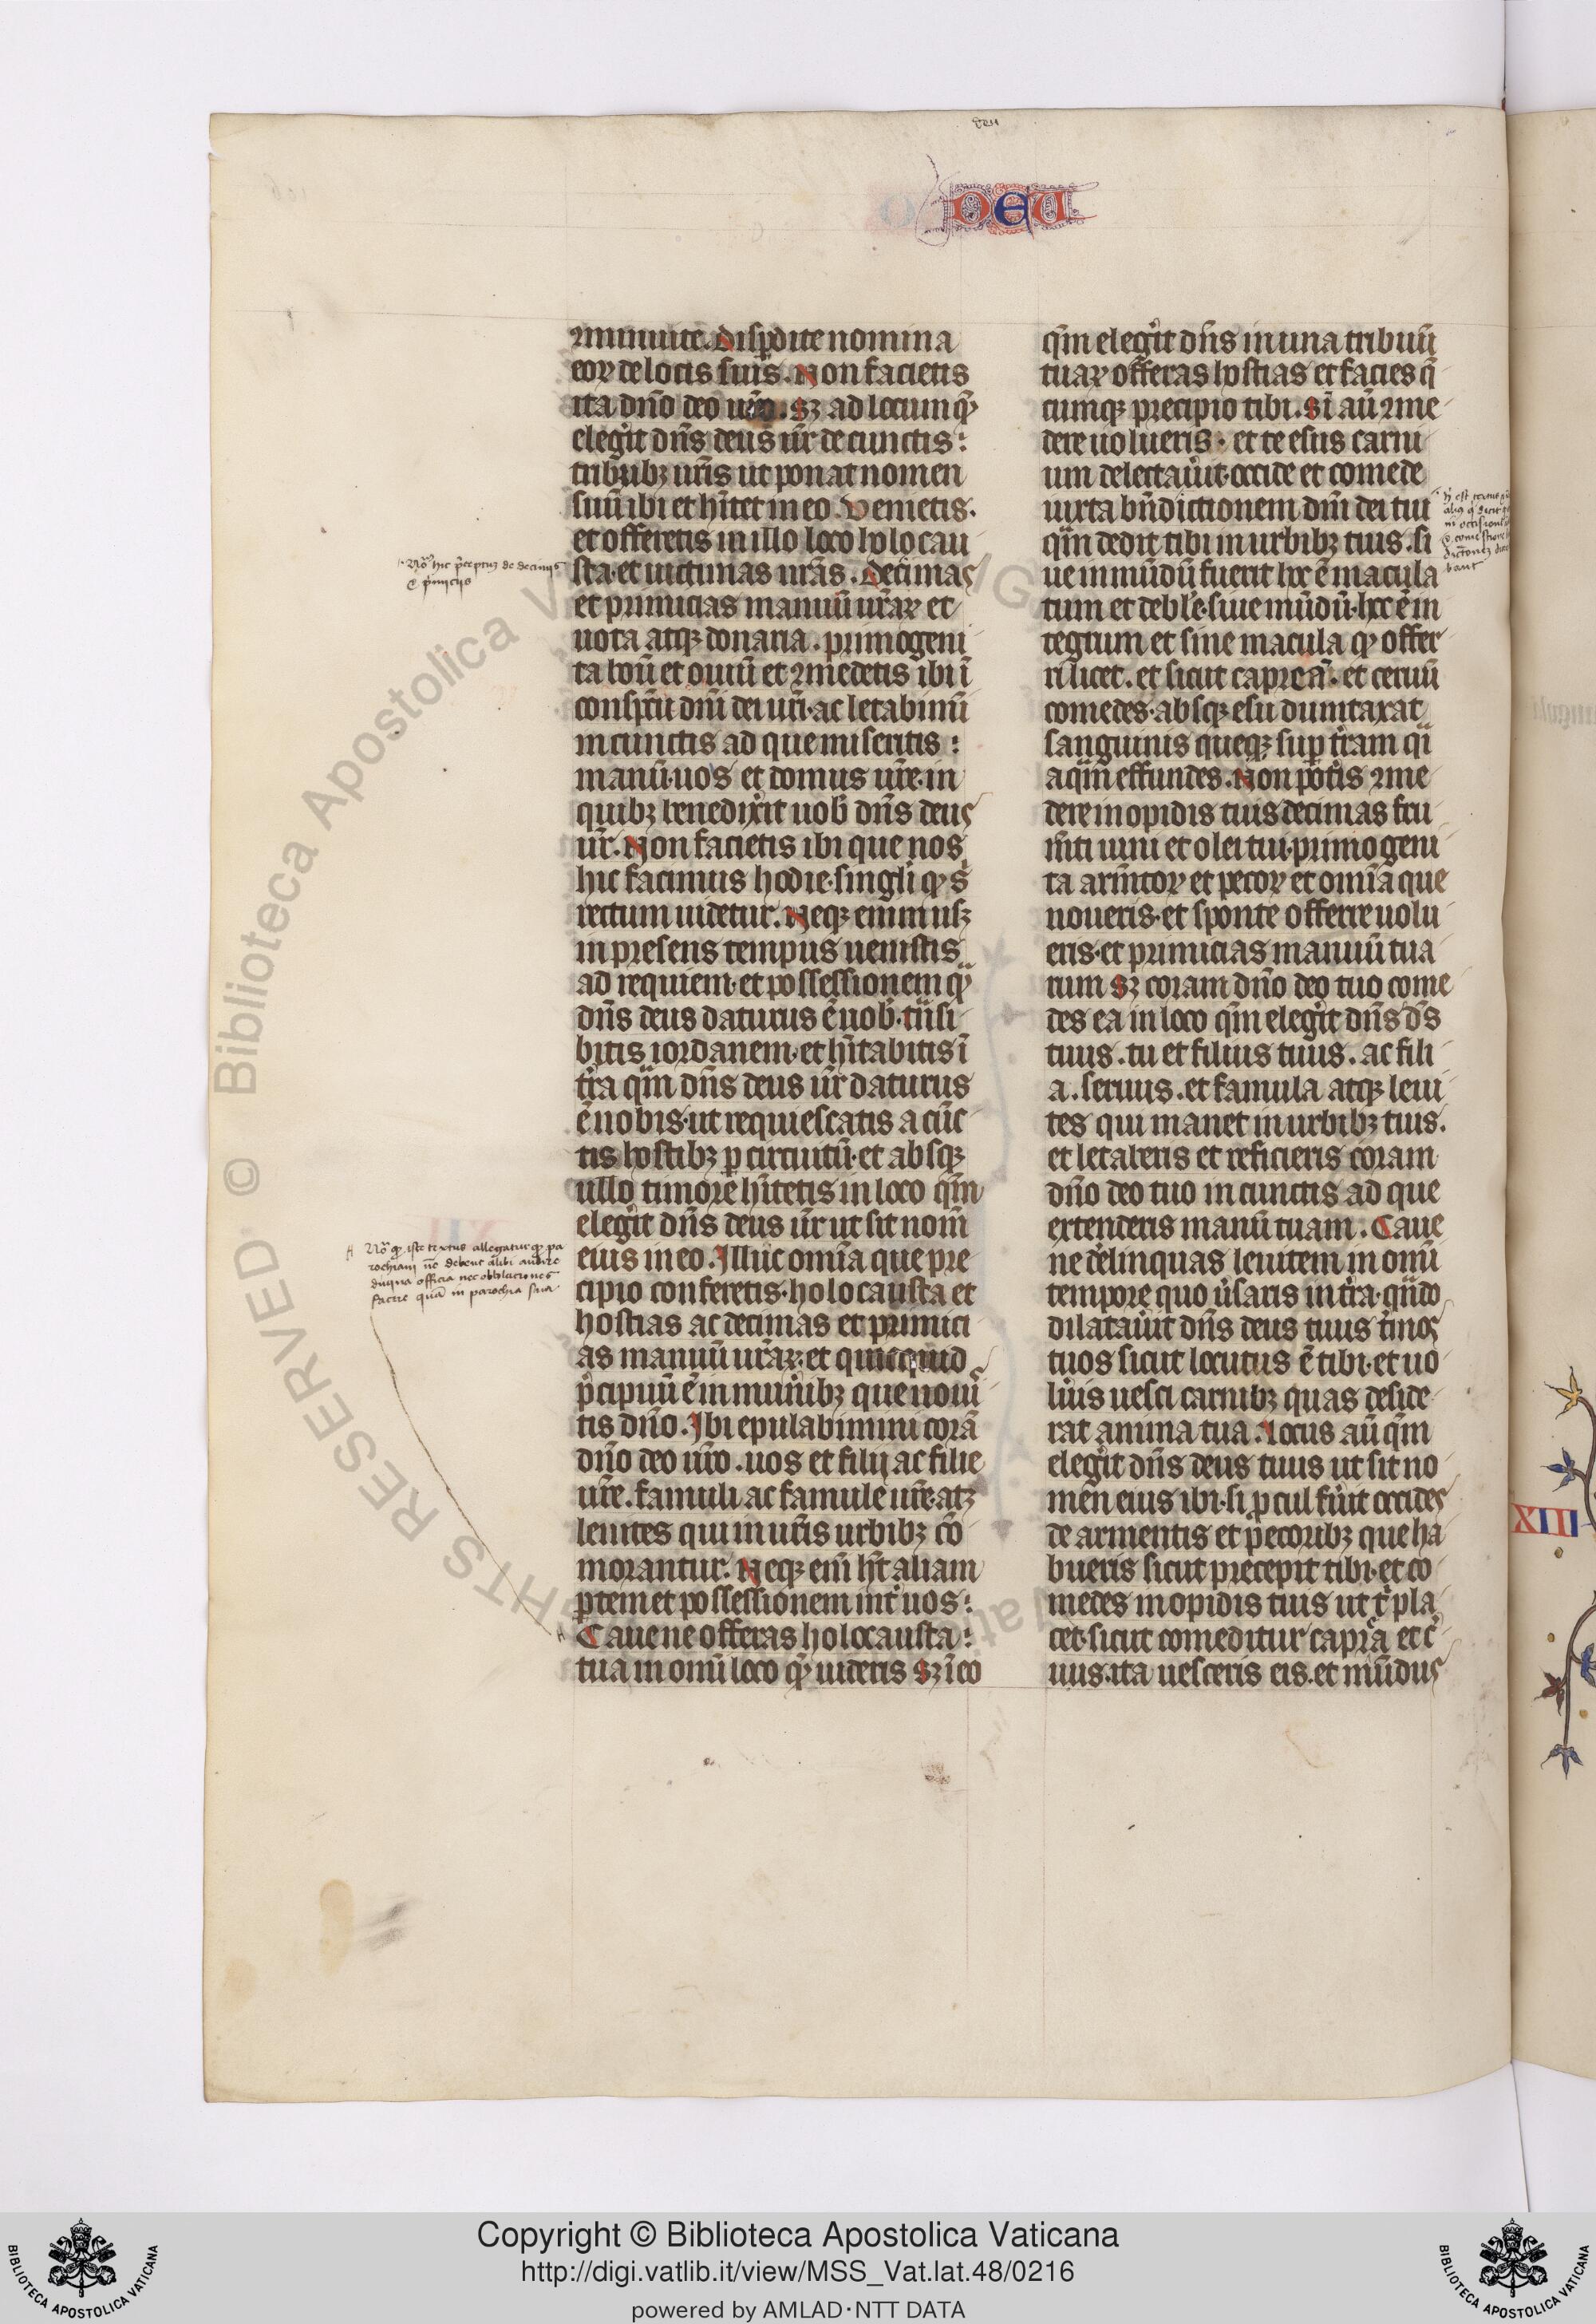 DEU
ↄminuite. Disꝑdite nomina
eoꝝ de locis suis. Non facietis
ita dn̄o deo ur̄o. Sꝫ ad locum quē
elegit dn̄s deus ur̄ de cunctis
tribꝫubꝫ ur̄is ut ponat nomen
suū ibi et hītet in eo. Venietis.
et offeretis in illo loco holocau
sta. et uictimas ur̄as. Decimas
et primicias manuū ur̄aꝝ et
uota atqꝫ donaria. primogeni
ta boū et ouiū et ↄmedetis ibi ī
conspc̄tu dn̄i dei ur̄i. ac letabimī
in cunctis ad que miseritis
manū. uos et domus ur̄e. in
quibꝫ benedixerit uob̄ dn̄s deus
ur̄. Non facietis ibi que nos
hic facimus hodie. singl̄i qđ s
rectum uidetur. Neqꝫ enim usqꝫ
in presens tempus uenistis
ad requiem. et possessionem quā
dn̄s deus daturus ē uob̄. tͣnsi
bitis iordanem. et hītabitis ī
tr̄a quam dn̄s deus ur̄ daturus
ē uobis. ut requiescatis a cūc
tis hostibꝫ ꝑ circuitū. et absqꝫ
ullo timore hītetis in loco quem
elegit dn̄s deus ur̄ ut sit nom̄
eius in eo. Illuc omīa que pre
cipio conferetis. holocausta et
hostias ac decimas et primici
as manuū ur̄aꝝ. et quicquid
p̄cipuū ē in munībꝫ que noui
tis dn̄o. Ibi epulabimini corā
dn̄o deo ur̄o. uos et filij ac filie
ur̄e. famuli ac famule ur̄e. atqꝫ
leuites qui in ur̄is urbibꝫ cō
morantur. Neqꝫ eni h̄t aliam
ꝑtem et possessionem int̄ uos
Caue ne offeras holocausta
tua in omi loco quē uideris Sꝫ ī eo
quem elegit dn̄s in una tribuū
tuaꝝ offeras hostias et facies q̄
cumqꝫ precipio tibi. Si aū ↄme
dere uolueris. et te esus carni
um delectauit. occide et comede
iuxta bn̄dictionem dn̄i dei tui
quam dedit tibi in urbibꝫ tuis. si
ue inmūdū fuerit hoc ē macula
tum et debl̄e. siue mūdū. hoc ē in
tegrum et sine macula qđ offer
ri licet. et sicut capream. et ceruū
comedes. absqꝫ esu dumtaxat
sanguinis quē sup̄ tr̄am qͣi
aquam effundes. Non pot̄is ↄme
dere in opidis tuis decimas fru
mn̄ti uini et olei tui. primogeni
ta armn̄toꝝ et pecoꝝ et omīa que
uoueris. et sponte offerre uolu
eris. et primicias manuū tua
rum Sꝫ coram dn̄o deo tuo come
des ea in loco quem elegit dn̄s ds̄
tuus. tu et filius tuus. ac fili
a. seruus. et famula atqꝫ leui
tes qui manet in urbibꝫ tuis.
et letaberis et reficieris coram
dn̄o deo tuo in cunctis ad que
extenderis manū tuam. Caue
ne delinquas leuitem in omi
tempore quo uersaris in tr̄a. quando
dilatauit dn̄s deus tuus tīnos
tuos sicut locutus ē tibi. et uo
lu̾is uesci carnibꝫ quas deside
rat anima tua. Locus aū quem
elegit dn̄s deus tuus ut sit no
men eius ibi. si ꝓcul fuit occides
de armentis et pecoribꝫ que ha
bueris sicut precepit tibi. et co
medes in opidis tuis ut t̾ pla
cet. sicut comeditur caprea et c̾
uus. ita uesceris eis. et mūdus
Nō hic preceptum de decimis
et primicijs
Nō qđ iste textus allegatur qđ pa
rochiani nō debent alibi audire
diuina officia nec oblaciones
facere quā in parochia sua
XIII
© Biblioteca Apostolica Vaticana
RIGHTS RESERVED
Copyright © Biblioteca Apostolica Vaticana
http://digi.vatlib.it/view/MSS_Vat.lat.48/0216
powered by AMLAD·NTT DATA
BIBLIOTECA APOSTOLICA VATICANA
BIBLIOTECA APOSTOLICA VATICANA